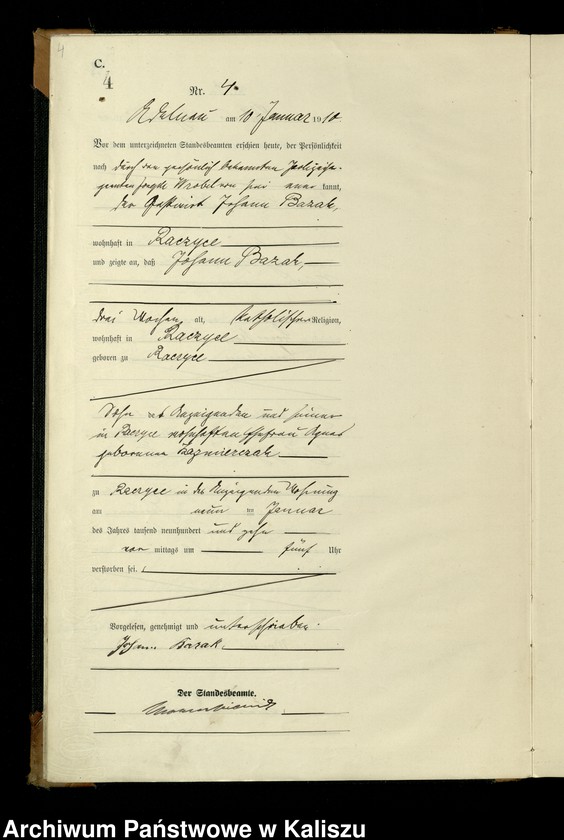 4
C.
4
Nr. 4.
Adelnau am 10 Januar 1910
Vor dem unterzeichneten Standesbeamten erschien heute, der Persönlichkeit
nach durch den persönlich bekannten
Wrobel von hier aner kannt,
der Gastwirt Johann Bazak,
wohnhaft in Raczyce
und zeigte an, daß Johann Bazak,
drei Wochen alt, katholischer Religion,
wohnhaft in Raczyce
geboren zu Raczyce
Sohn des Anzeigenden und seiner
in Raczyce wohnhaften Ehefrau Agnes
geborenen Kazmierczak
zu Raczyce in des Anzeigenden Wohnung
am neun ten Januar
des Jahres tausend neunhundert und zehn
vor mittags um fünf Uhr
verstorben sei.
Vorgelesen, genehmigt und unterschrieben.
Johann Bazak
Der Standesbeamte.
Archiwum Państwowe w Kaliszu